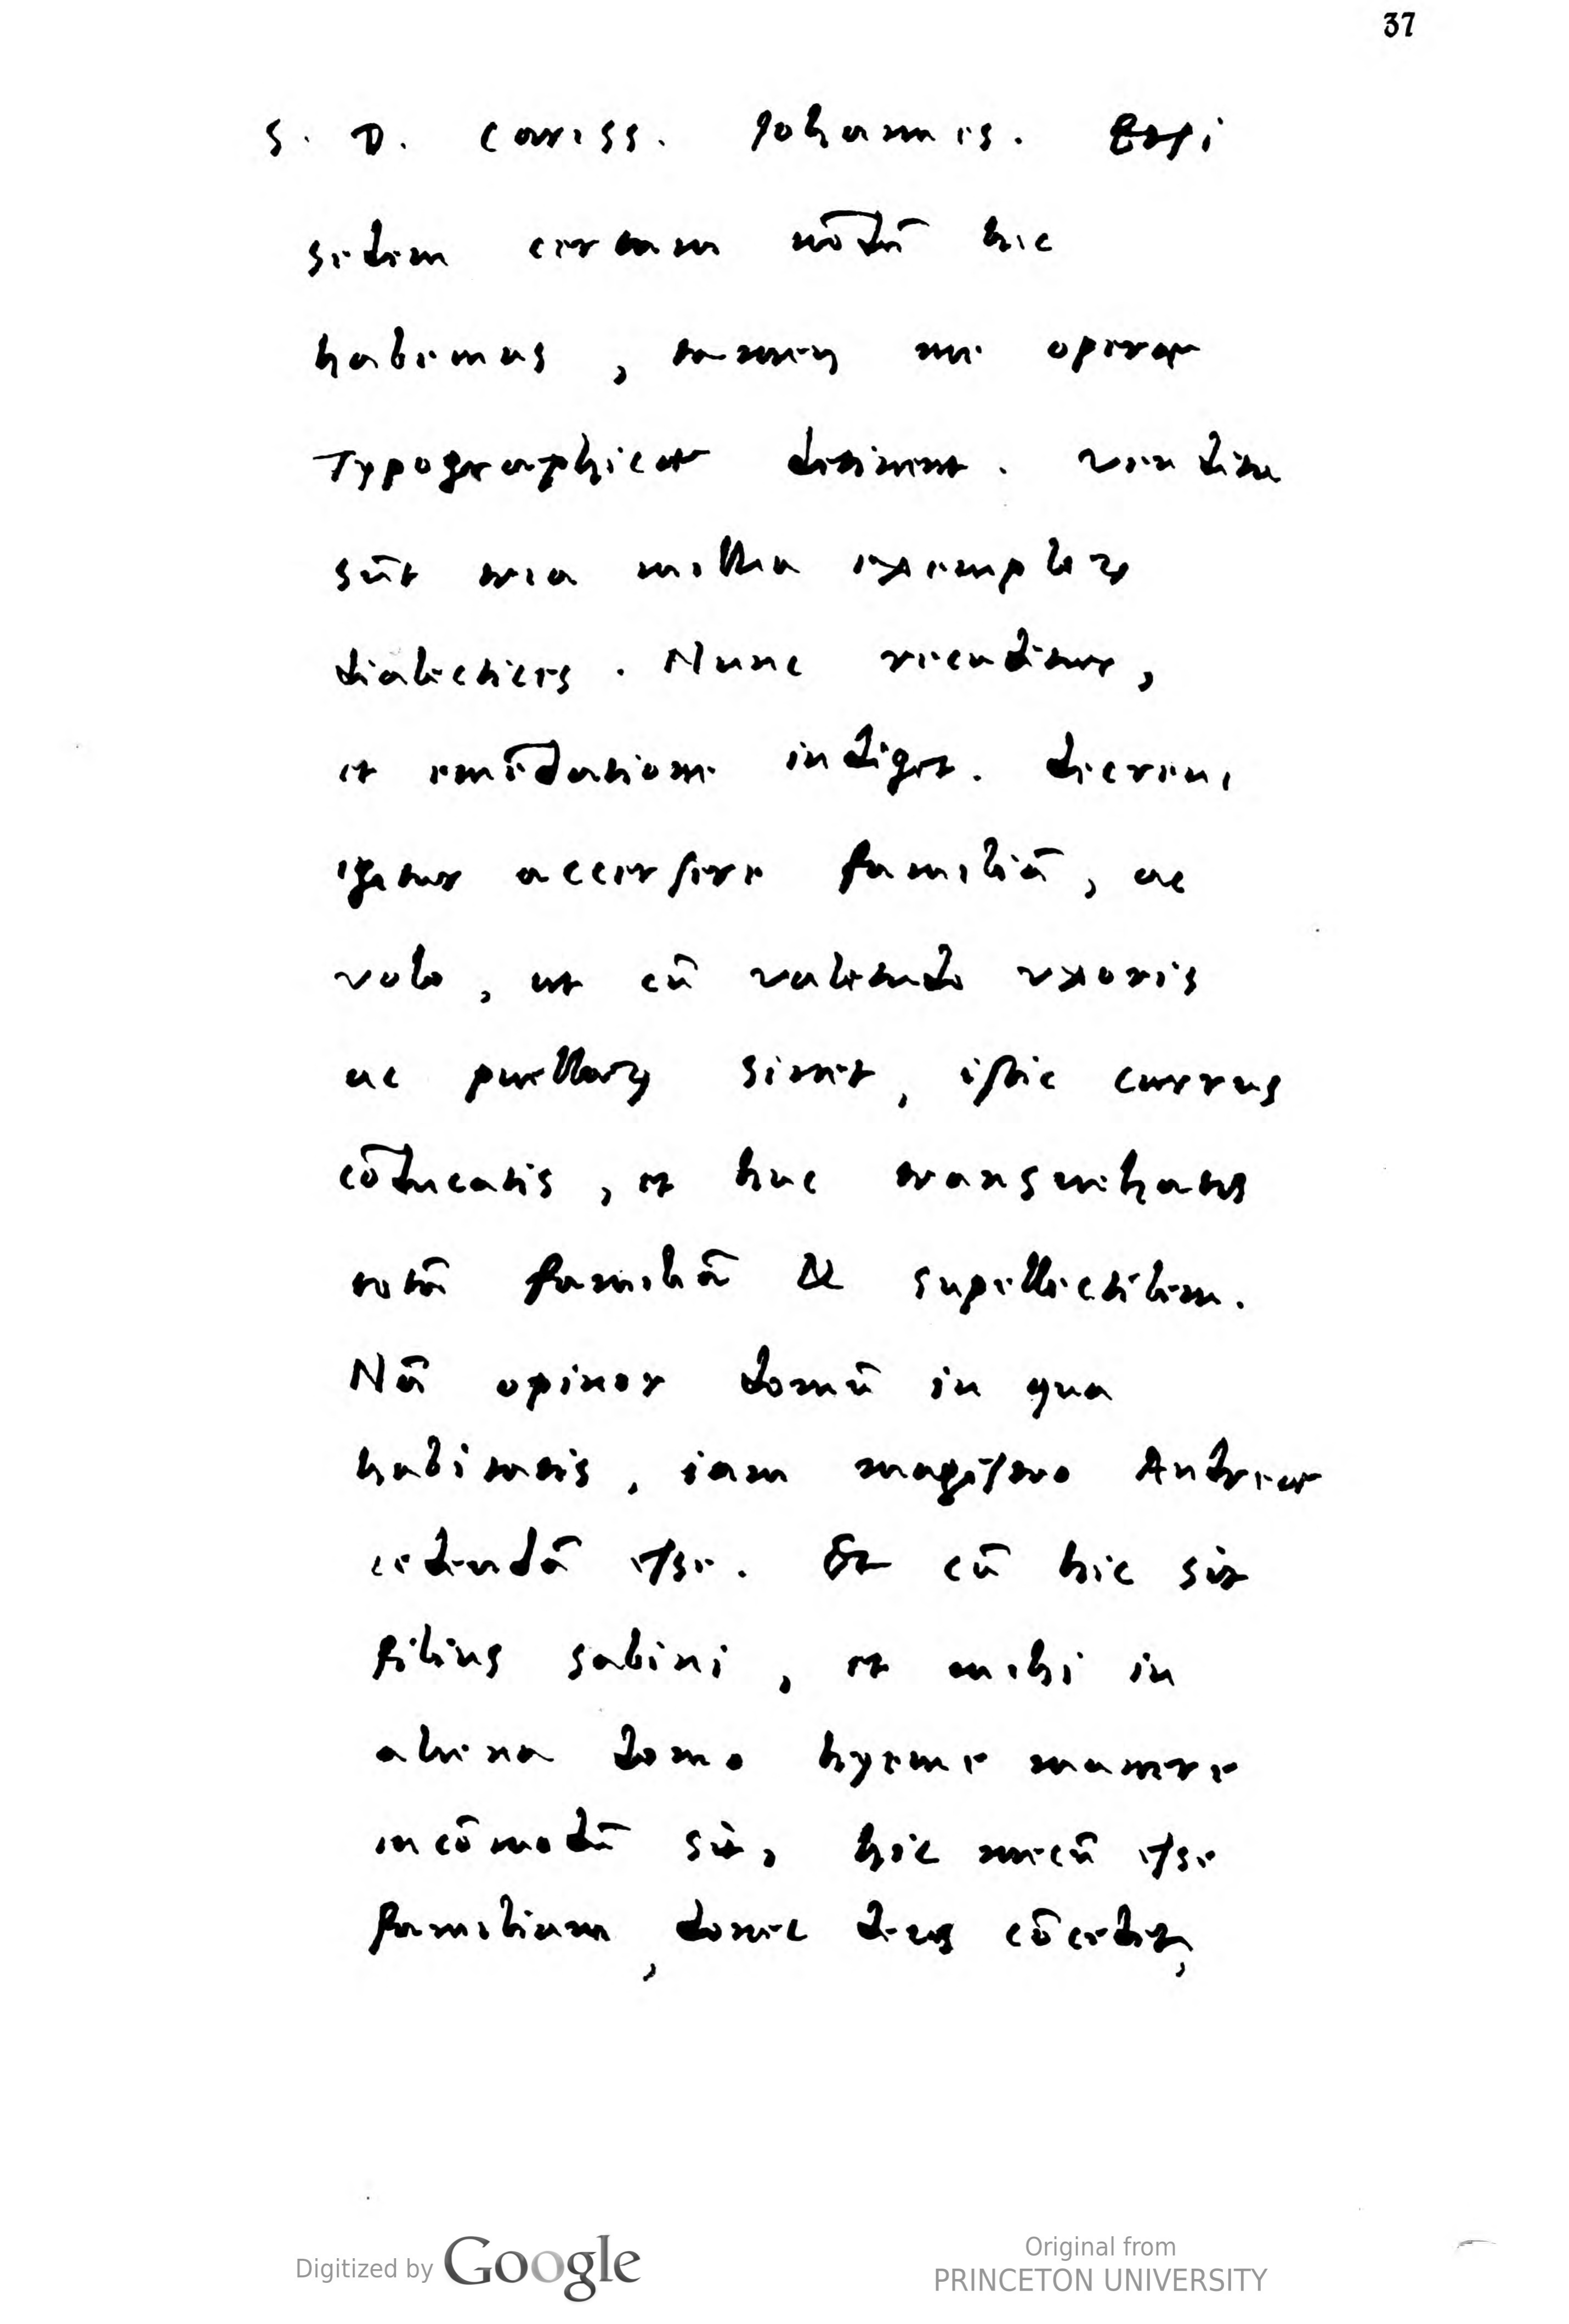 37
S. D. Cariss. Johannes. Etsi
sedem certam nōdū hic
habemus, tamen me operae
Typographicae detinent. Vendita
sūt tria millia exemplarꝝ
dialectices. Nunc recuditur,
et emēdatione indiget. decreui
igitur accersere familiā, ac
volo, ut cū valetudo vxoris
ac puellarꝝ sinet, istic currus
cōducatis, et huc transuehatis
totā familiā & supellectilem.
Nā opinor domū in qua
habitatis, iam magistro Andreae
cedendā esse. Et cū hic sit
filius sabini, et mihi in
aliena domo hyeme manere
incōmodū sit, hic mecū esse
familiam, donec deus cōcedet,
Digitized by Google
Original from
PRINCETON UNIVERSITY